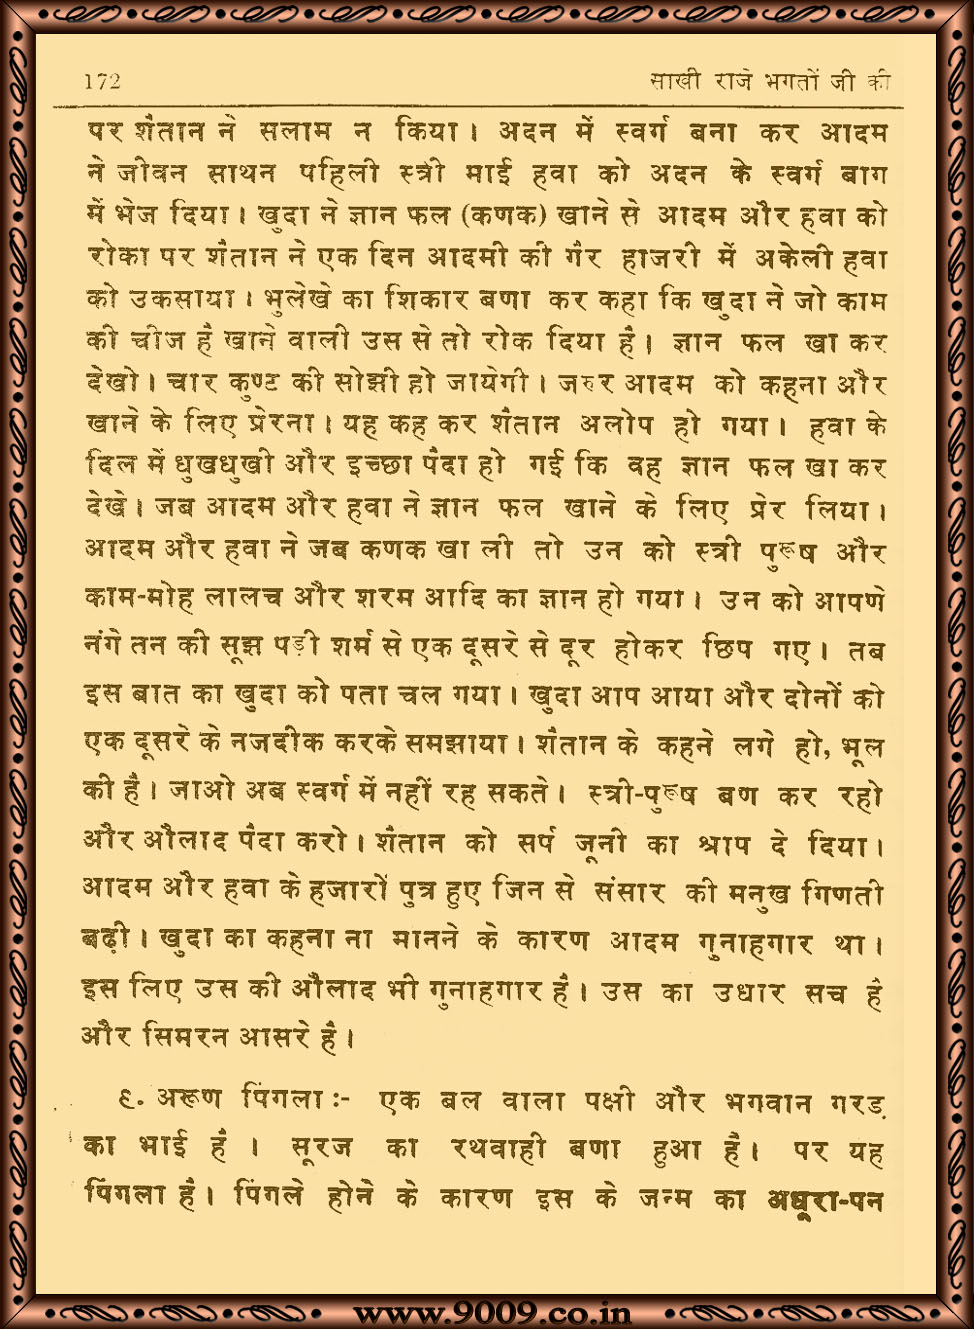 172 साखी राजे भगतों जी की
पर शैतान ने सलाम न किया। अदन में स्वर्ग बना कर आदम
ने जीवन साथन पहिली स्त्री माई हवा को अदन के स्वर्ग बाग
में भेज दिया। खुदा ने ज्ञान फल (कणक) खाने से आदम और हवा को
रोका पर शैतान ने एक दिन आदमी की गैर हाजरी में अकेली हवा
को उकसाया। भुलेखे का शिकार बणा कर कहा कि खुदा ने जो काम
की चीज है खाने वाली उस से तो रोक दिया है। ज्ञान फल खा कर
देखो। चार कुण्ट की सोझी हो जायेगी। जरुर आदम को कहना और
खाने के लिए प्रेरना। यह कह कर शैतान अलोप हो गया। हवा के
दिल में धुखधुखी और इच्छा पैदा हो गई कि वह ज्ञान फल खा कर
देखे। जब आदम और हवा ने ज्ञान फल खाने के लिए प्रेर लिया।
आदम और हवा ने जब कणक खा ली तो उन को स्त्री पुरूष और
काम-मोह लालच और शरम आदि का ज्ञान हो गया। उन को आपणे
नंगे तन की सूझ पड़ी शर्म से एक दूसरे से दूर होकर छिप गए। तब
इस बात का खुदा को पता चल गया। खुदा आप आया और दोनों को
एक दूसरे के नजदीक करके समझाया। शैतान के कहने लगे हो, भूल
की है। जाओ अब स्वर्ग में नहीं रह सकते। स्त्री-पुरूष बण कर रहो
और औलाद पैदा करो। शैतान को सर्प जूनी का श्राप दे दिया।
आदम और हवा के हजारों पुत्र हुए जिन से संसार की मनुख गिणती
बढ़ी। खुदा का कहना ना मानने के कारण आदम गुनाहगार था।
इस लिए उस की औलाद भी गुनाहगार है। उस का उधार सच है
और सिमरन आसरे है।
९. अरूण पिंगला :- एक बल वाला पक्षी और भगवान गरड़
का भाई है । सूरज का रथवाही बणा हुआ है। पर यह
पिंगला है। पिंगले होने के कारण इस के जन्म का अधूरा-पन
www.9009.co.in